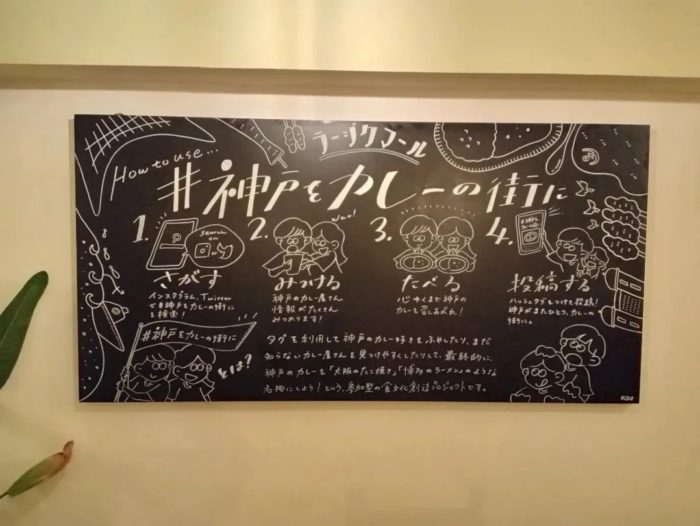 ラージクマール
How to use...
#神戸をカレーの街に
1.
Search on
さがす
インスタグラム、Twitter
で#神戸をカレーの街に
を検索!
2.
Wow!
みつける
神戸のカレー屋さん
情報がたくさん
みつかります!
3.
たべる
心ゆくまで神戸の
カレーを召しあがれ!
4.
投稿する
ハッシュタグをつけて投稿!
神戸がまたひとつ、カレーの
街に。
#神戸をカレーの街に
とは?
タグを利用して神戸のカレー好きをふやしたり、まだ
知らないカレー屋さんを見つけやすくしたりして、最終的に
神戸のカレーを「大阪のたこ焼き」「博多のラーメン」のような
名物にしよう!という、参加型の食文化創造プロジェクトです。